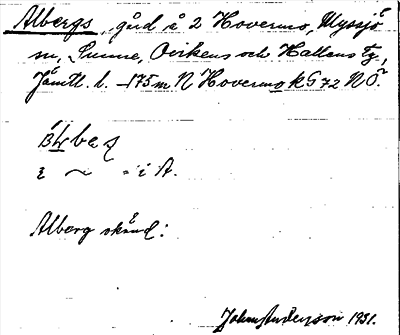 Albergs, gård å 2 Hovermo, Myssjö
sn, Sunne, Ovikens och Hallens tg,
Jämtl. l. 175 m N Hovermo kG 72 NÖ.
i A.
Alberg okänd:
John Anderson 1931.